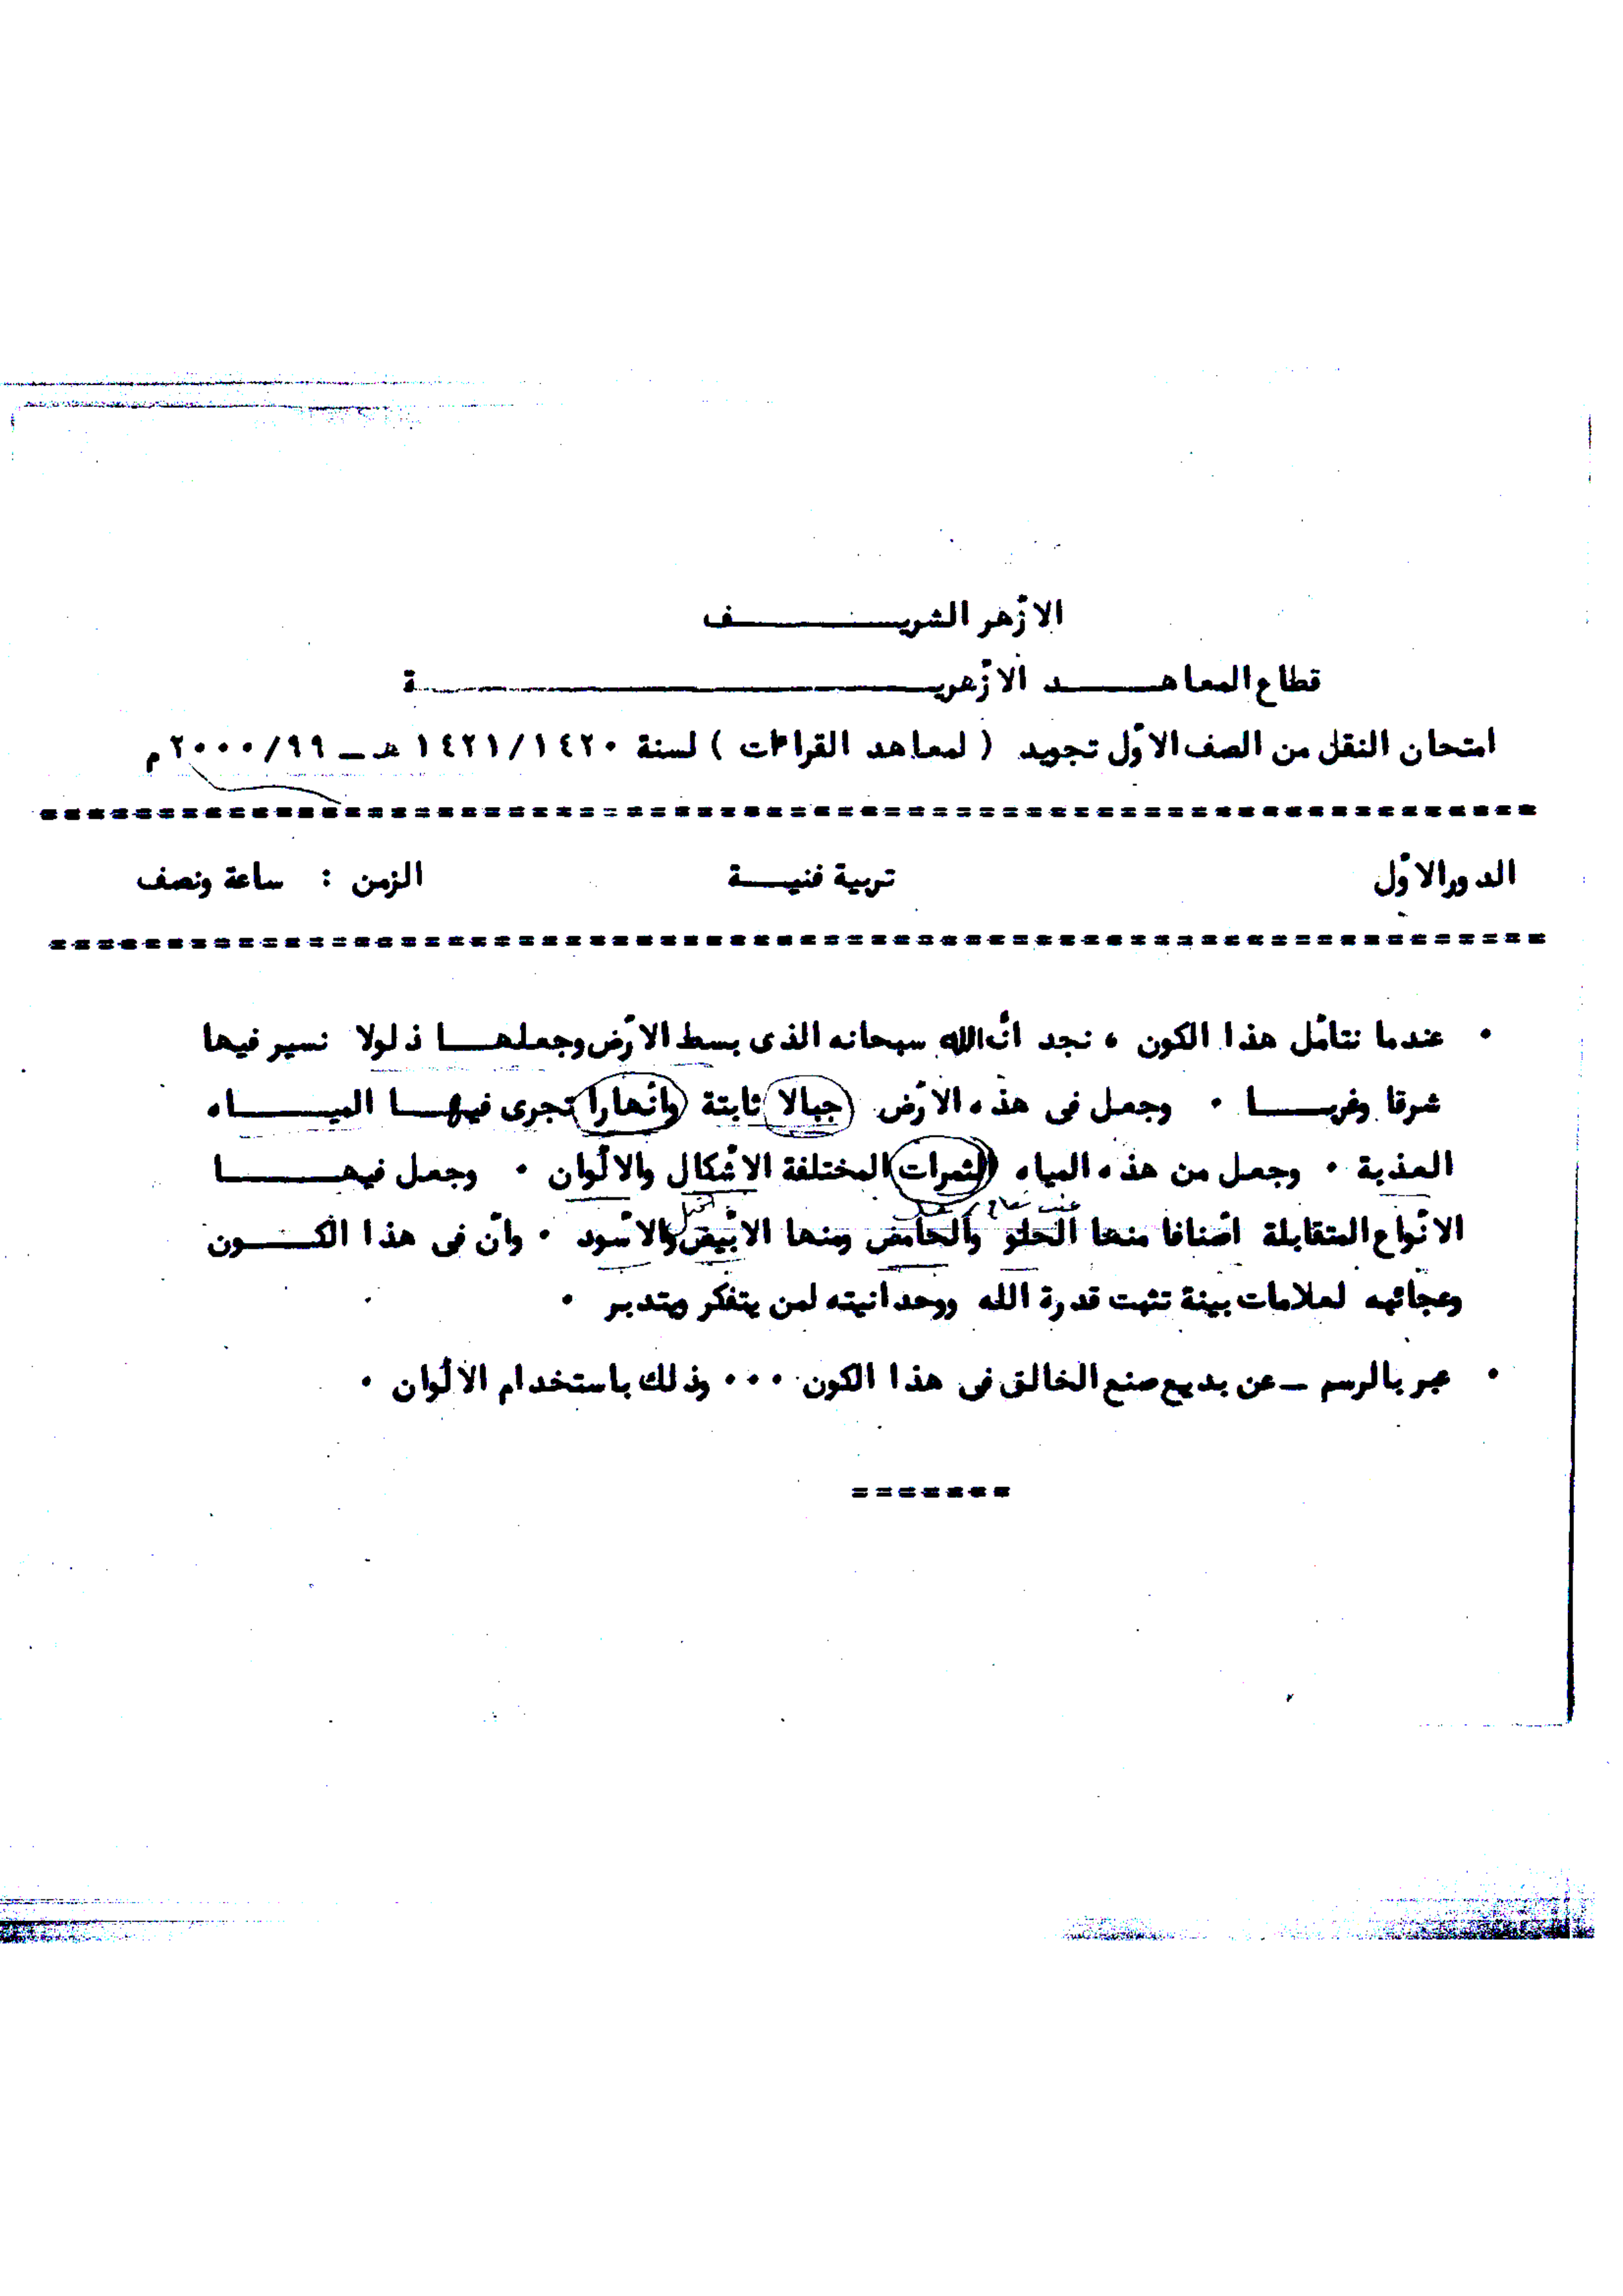 الأزهر الشريف
قطاع المعاهد الأزهرية
امتحان النقل من الصف الأول تجويد ( لمعاهد القراءات ) لسنة ١٤٢١/١٤٢٠ هـ – ٢٠٠٠/٩٩ م
الدور الأول تربية فنية الزمن : ساعة ونصف
• عندما نتأمل هذا الكون ، نجد أن الله سبحانه الذى بسط الأرض وجعلها ذلولا نسير فيها
شرقا وغربا • وجعل فى هذه الأرض جبالا ثابتة وأنهارا تجرى فيها المياه
العذبة • وجعل من هذه المياه الثمرات المختلفة الأشكال والألوان • وجعل فيها
الأنواع المتقابلة أصنافا منها الحلو والحامض ومنها الأبيض والأسود • وأن فى هذا الكون
وعجائبه لعلامات بينة تثبت قدرة الله ووحدانيته لمن يتفكر ويتدبر •
• عبر بالرسم – عن بديع صنع الخالق فى هذا الكون ••• وذلك باستخدام الألوان •
=======